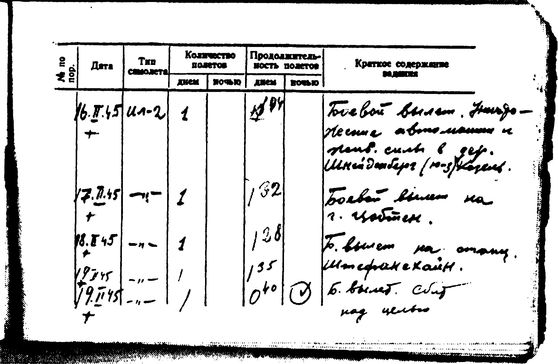 № по пор.
Дата
Тип самолета
Количество полетов
днем ночью
Продолжительность полетов
днем ночью
Краткое содержание задания
16.II.45 Ил-2 1 Боевой вылет. Уничтожение автомашин и
жив. силы в дер.
17.II.45 –"– 1 1 32 Боевой вылет на
г. Цобтен.
18.II.45 –"– 1 1 28 Б. вылет на станц.
Штефансхайн.
19.II.45 –"– 1 1 35
19.II.45 –"– 1 0 40 Б. вылет. Сбит
над целью